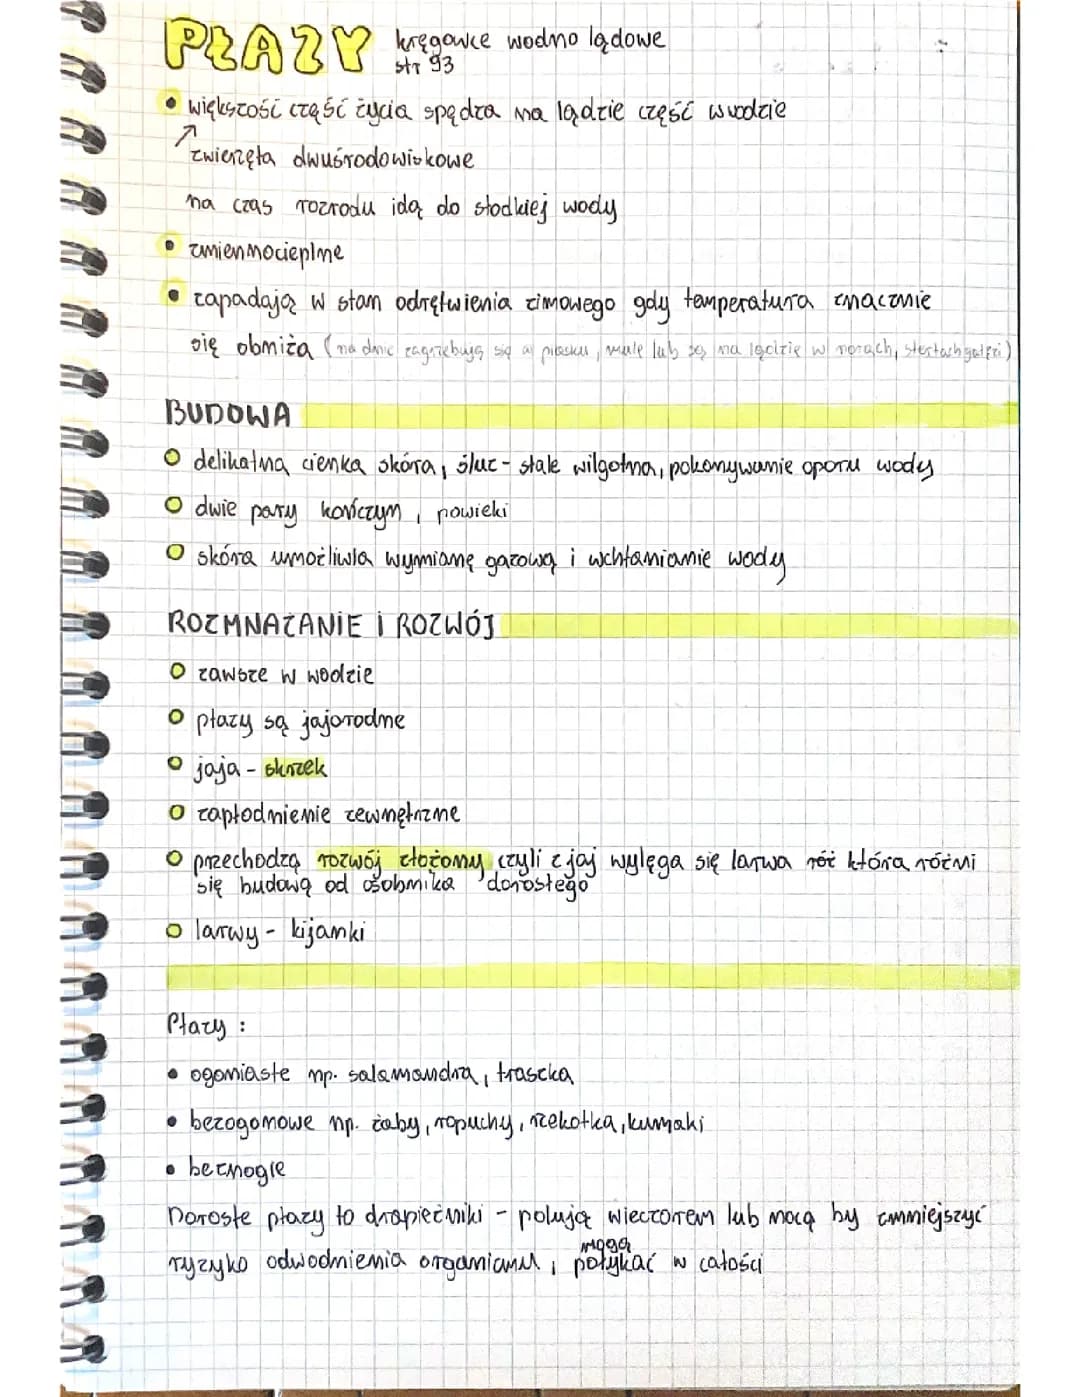 PŁAZY kręgowce wodno lądowe
str 93
• większość część życia spędza na lądzie część w wodzie
↗ zwierzęta dwuśrodowiskowe
na czas rozrodu idą do słodkiej wody
• zmiennocieplne
• zapadają w stan odrętwienia zimowego gdy temperatura znacznie
się obniża (na dnie zagrzebują się w piasku, mule lub są na lądzie w norach, stertach gałęzi)
BUDOWA
○ delikatna cienka skóra, śluz - stale wilgotna, pokonywanie oporu wody
○ dwie pary kończyn, powieki
○ skóra umożliwia wymianę gazową i wchłanianie wody
ROZMNAŻANIE I ROZWÓJ
○ zawsze w wodzie
○ płazy są jajorodne
○ jaja - skrzek
○ zapłodnienie zewnętrzne
○ przechodzą rozwój złożony czyli z jaj wylęga się larwa która różni
się budową od osobnika dorosłego
○ larwy - kijanki
Płazy :
• ogoniaste np. salamandra, traszka
• bezogonowe np. żaby, ropuchy, rzekotka, kumaki
• beznogie
Dorosłe płazy to drapieżniki - polują wieczorem lub nocą by zmniejszyć
ryzyko odwodnienia organizmu, mogą połykać w całości